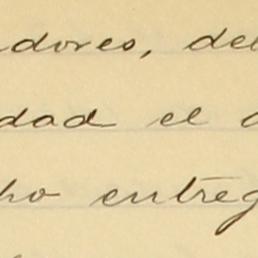 adores, del
dad el a
ho entreg